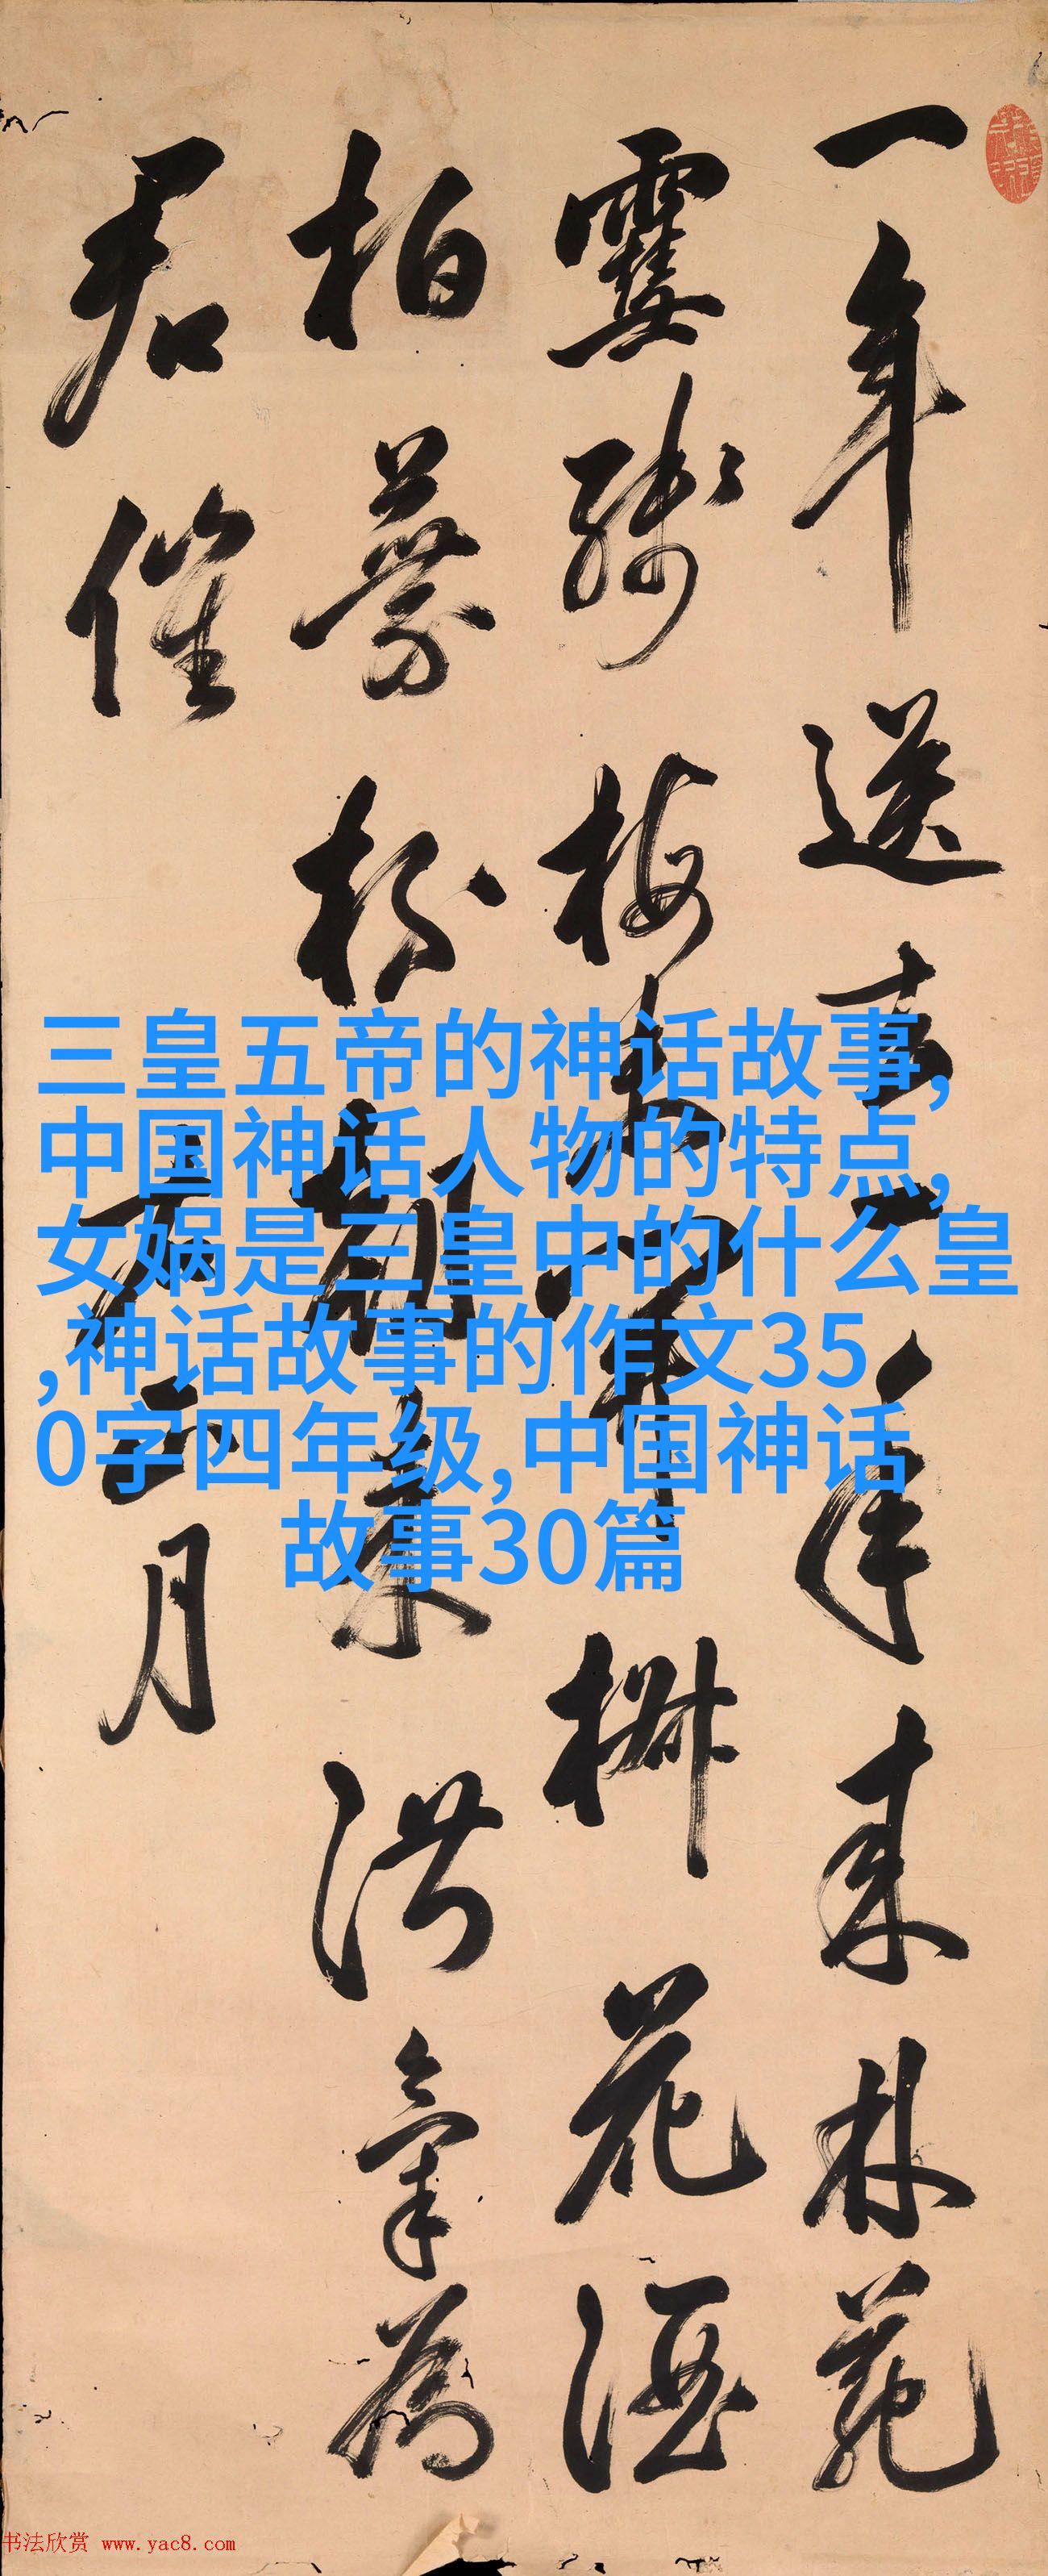 一年送去一年来林苑
霙残梅開椒花酒
柏葉朝来淑氣為
君催
右正月
三皇五帝的神话故事,
中国神话人物的特点,
女娲是三皇中的什么皇
,神话故事的作文35
0字四年级,中国神话
故事30篇
书法欣赏 www.yac8.com